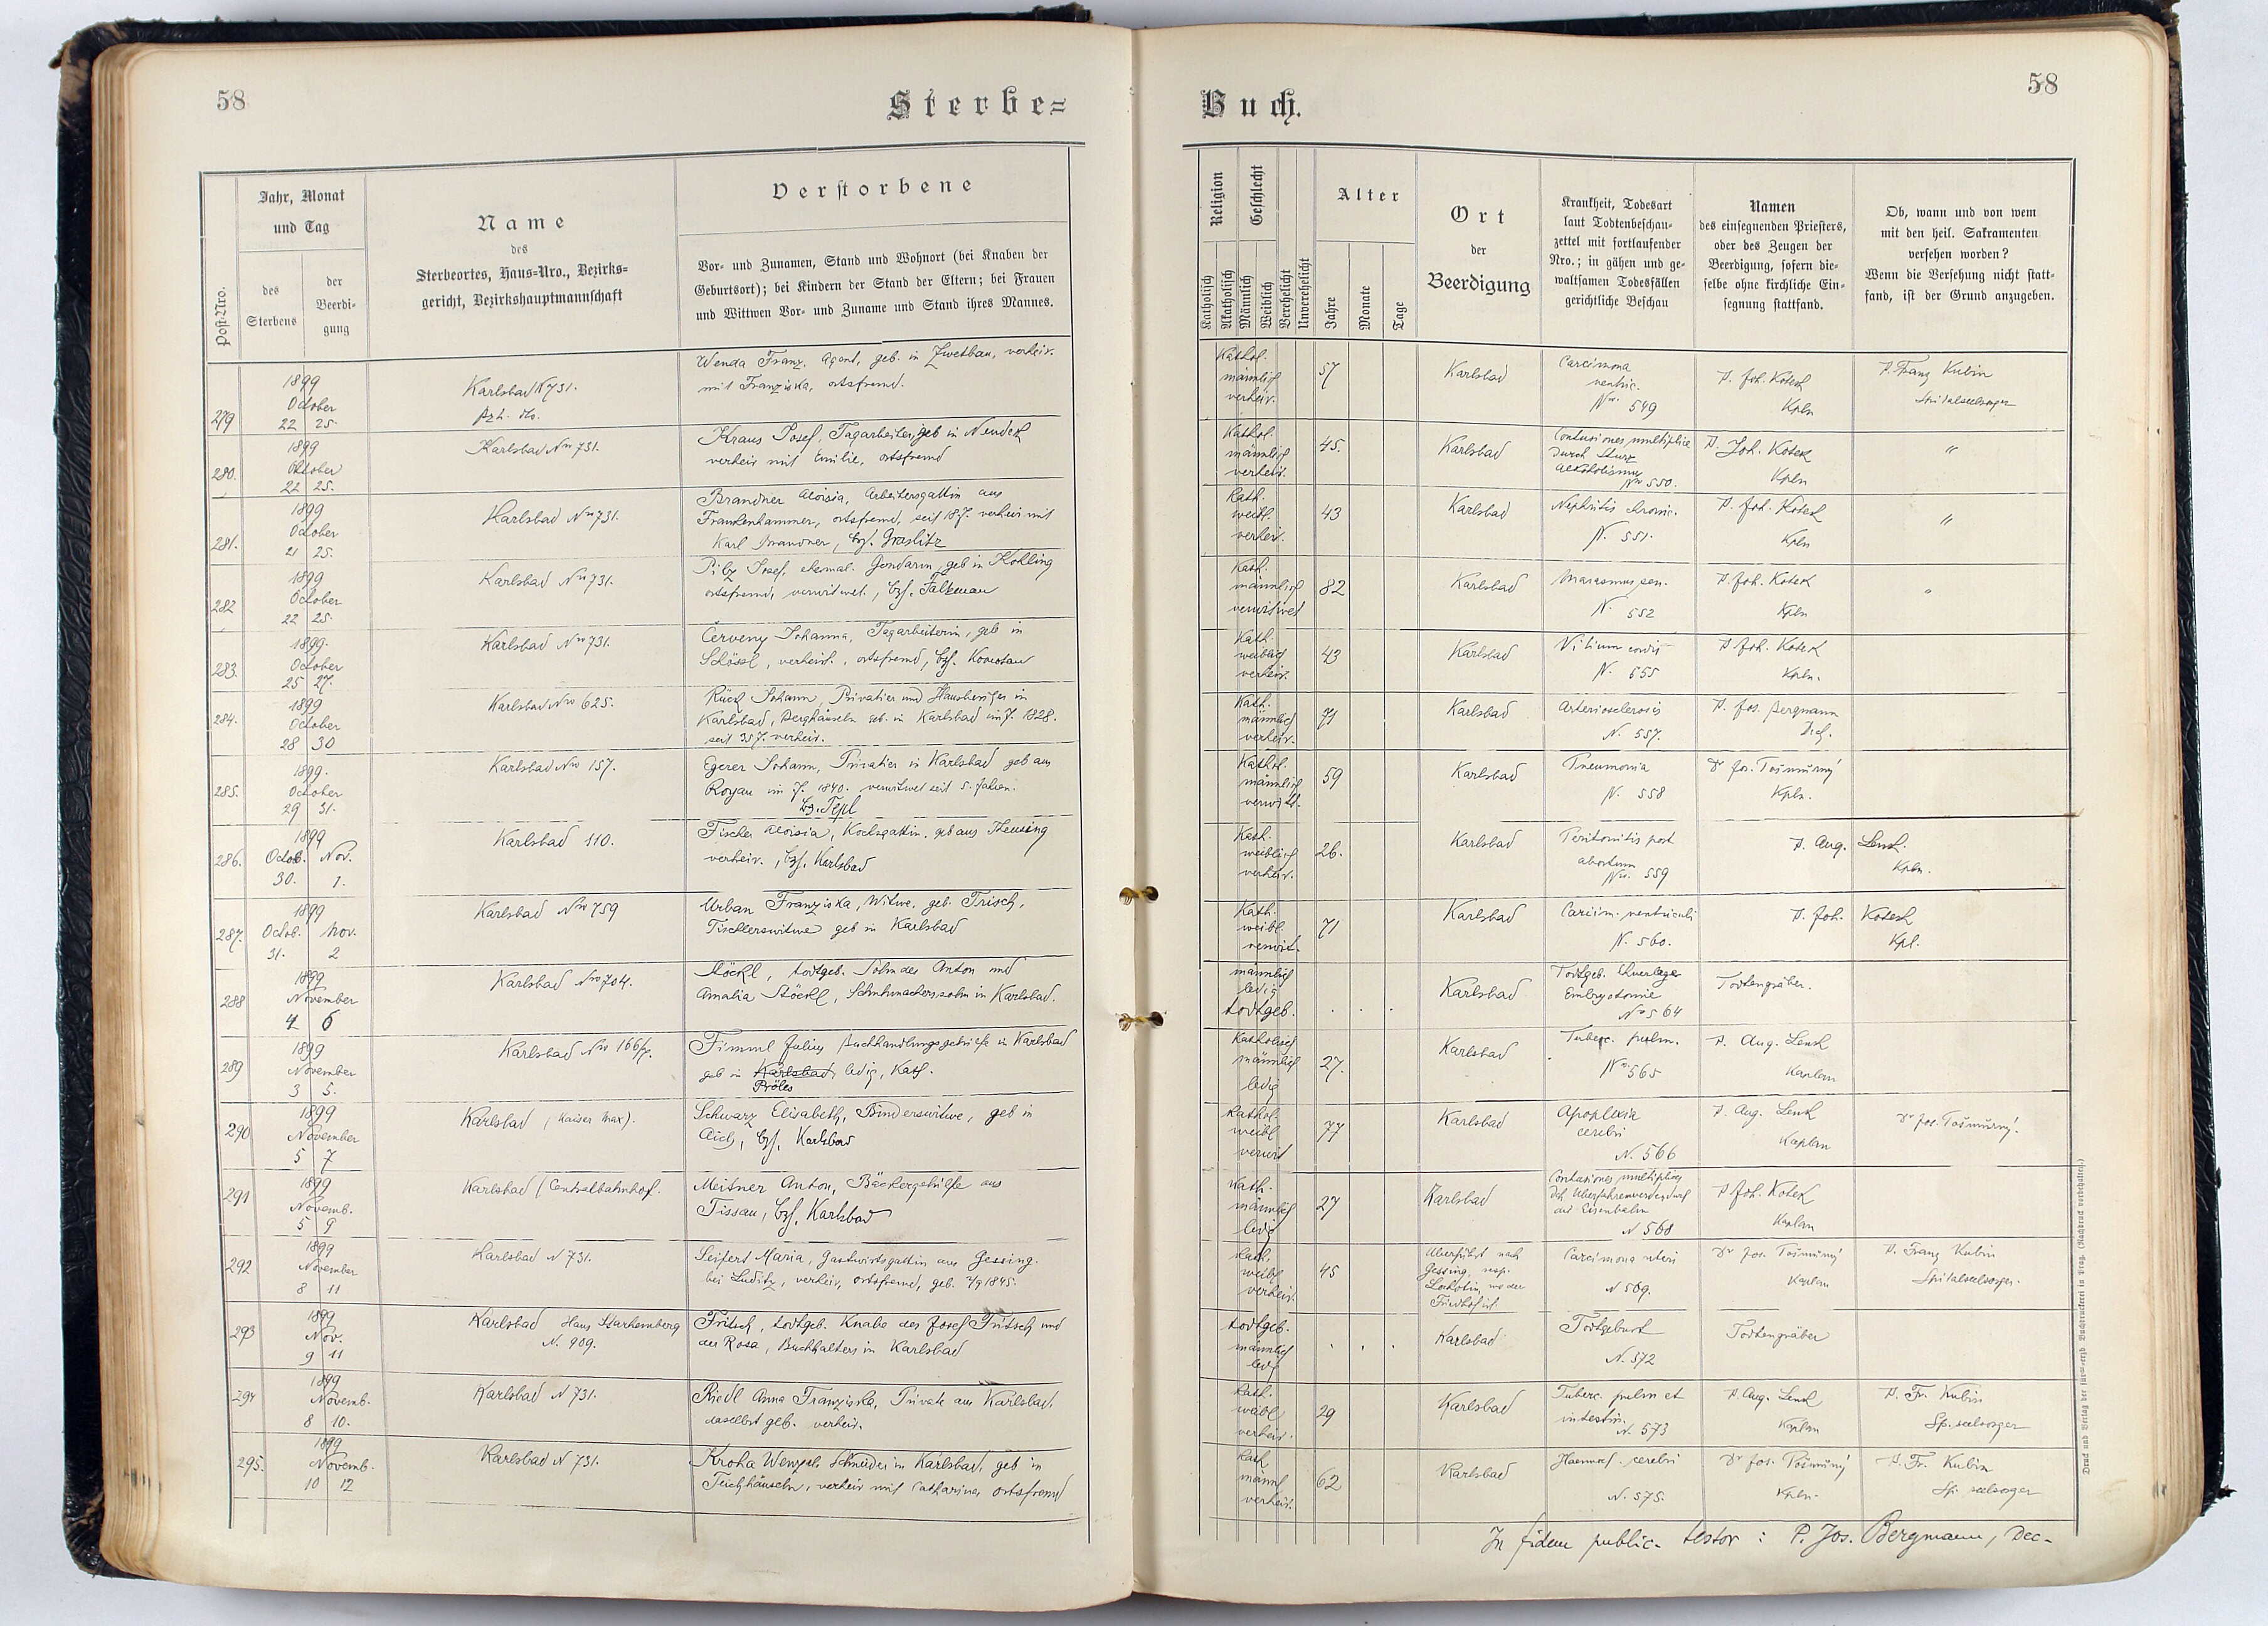 58
Sterbe=
Jahr, Monat
und Tag
des
Sterbens
der
Beerdi-
gung
Post-Nro.
Name
des
Sterbeortes, Haus-Nro., Bezirks-
gericht, Bezirkshauptmannschaft
Verstorbene
Vor- und Zunamen, Stand und Wohnort (bei Knaben der
Geburtsort); bei Kindern der Stand der Eltern; bei Frauen
und Wittwen Vor- und Zuname und Stand ihres Mannes.
279
1899
October
22 25.
Karlsbad N 731.
Wenda Franz, Agent, geb. in Zwetbau, verheir.
mit Franziska, ortsfremd.
280.
1899
Oktober
22 25.
Karlsbad Nro 731.
Kraus Josef, Tagarbeiter, geb in Neudek
verheir mit Emilie, ortsfremd
281.
1899
October
21 25.
Karlsbad Nro 731.
Brandner Aloisia, Arbeitersgattin aus
Frankenhammer, ortsfremd, seit 18 J. verheir mit
Karl Brandner, bzh. Graslitz
282
1899
October
22 25.
Karlsbad Nro 731.
Pilz Josef, ehemal. Gendarm, geb in Kohling
ortsfremd, verwitwet, bzh. Falkenau
283.
1899.
October
25 27.
Karlsbad Nro 731.
Červeny Johanna, Tagarbeiterin, geb in
Schössl, verheirt., ortsfremd, bzh. Komotau
284.
1899
October
28 30
Karlsbad Nro 625.
Rückl Johann, Privatier und Hausbesitzer in
Karlsbad, Berghäuseln geb. in Karlsbad im J. 1828.
seit 35 J. verheir.
285.
1899.
October
29 31.
Karlsbad Nro 157.
Egerer Johann, Privatier in Karlsbad geb aus
Royau im J. 1840. verwitwet seit 5. Jahren.
bzh. Tepl
286.
1899
Octob. Nov.
30. 1.
Karlsbad 110.
Fischer Aloisia, Kochsgattin, geb aus Theusing
verheir., bzh. Karlsbad
287.
1899
Octob. Nov.
31. 2
Karlsbad Nro 759
Urban Franziska, Witwe, geb. Frisch,
Tischlerswitwe geb in Karlsbad
288
1899
November
4 6
Karlsbad Nro 704.
Stöckl, todtgeb. Sohn des Anton und
Amalia Stöckl, Schuhmacherssohn in Karlsbad.
289
1899
November
3 5.
Karlsbad Nro 166/7.
Fimml Julius Buchhandlungsgehilfe in Karlsbad
geb in Karlsbad, ledig, Kath.
Pröles
290
1899
November
5 7
Karlsbad (Kaiser Max).
Schwarz Elisabeth, Binderswitwe, geb in
Aich, bzh. Karlsbad
291
1899
Novemb.
5 9
Karlsbad (Centralbahnhof.
Meitner Anton, Bäckergehilfe aus
Tissau, bzh. Karlsbad
292
1899
November
8 11
Karlsbad N 731.
Seifert Maria, Gastwirtsgattin aus Gessing.
bei Luditz, verheir, ortsfremd, geb. 2/9 1845.
293
1899
Nov.
9 11
Karlsbad Haus Starhemberg
N. 909.
Fritsch, todtgeb. Knabe des Josef Fritsch und
der Rosa, Buchhalters in Karlsbad
294
1899
Novemb.
8 10.
Karlsbad N 731.
Riedl Anna Franziska, Private aus Karlsbad,
daselbst geb. verheir.
295.
1899
Novemb.
10 12
Karlsbad N 731.
Kroha Wenzel, Schneider in Karlsbad, geb in
Teichhäuseln, verheir mit Catharina, ortsfremd
Buch.
58
Religion
Katholisch
Akatholisch
Geschlecht
Männlich
Weiblich
Verehelicht
Unverehelicht
Alter
Jahre
Monate
Tage
Ort
der
Beerdigung
Krankheit, Todesart
laut Todtenbeschau-
zettel mit fortlaufender
Nro.; in gähen und ge-
waltsamen Todesfällen
gerichtliche Beschau
Namen
des einsegnenden Priesters,
oder des Zeugen der
Beerdigung, sofern die-
selbe ohne kirchliche Ein-
segnung stattfand.
Ob, wann und von wem
mit den heil. Sakramenten
versehen worden?
Wenn die Versehung nicht statt-
fand, ist der Grund anzugeben.
Kathol.
männlich
verheir.
57
Karlsbad
Carcinoma
ventric.
Nro. 549
P. Joh. Kotek
Kpln
P. Franz Kubin
Spitalseelsorger
Kathol.
männlich
verheir.
45.
Karlsbad
Contusiones multiplices
durch Sturz
Alkoholismus
Nro 550.
P. Joh. Kotek
Kpln
"
Kath.
weibl.
verheir.
43
Karlsbad
Nephritis chronic.
N. 551.
P. Joh. Kotek
Kpln
"
Kath.
männlich
verwitwet
82
Karlsbad
Marasmus sen.
N. 552
P. Joh. Kotek
Kpln
"
Kath.
weiblich
verheir.
43
Karlsbad
Vitium cordis
N. 555
P. Joh. Kotek
Kpln.
Kath.
männlich
verheir.
71
Karlsbad
Arteriosclerosis
N. 557.
P. Jos. Bergmann
Dech.
Kathol.
männlich
verwitt.
59
Karlsbad
Pneumonia
N. 558
Dr Jos. Pošmůrný
Kpln.
Kath.
weiblich
verheir.
26.
Karlsbad
Peritonitis post
abortum
Nro. 559
P. Aug. Lenk.
Kpln.
Kath.
weibl.
verwit.
71
Karlsbad
Carcin. ventriculi
N. 560.
P. Joh. Kotek
Kpl.
männlich
ledig
todtgeb.
. . .
Karlsbad
Todtgeb. Querlage
Embryotomie
Nro 564
Todtengräber.
Katholisch
männlich
ledig
27.
Karlsbad
Tuberc. pulm.
Nro 565
P. Aug. Lenk
Kaplan
Kathol.
weibl
verwit
77
Karlsbad
Apoplexia
cerebri
N. 566
P. Aug. Lenk
Kaplan
Dr Jos. Pošmůrný.
Kath.
männlich
ledig
27
Karlsbad
Contusiones multiplices
dch Überfahrenwerden durch
die Eisenbahn
N 568
P Joh. Kotek
Kaplan
Kath.
weibl
verheir.
45
Überführt nach
Gessing, resp.
Lochotin, wo der
Friedhof ist.
Carcinoma uteri
N 569.
Dr Jos. Pošmůrný
Kaplan
P. Franz Kubin
Spitalseelsorger.
todtgeb.
männlich
ledig
. . .
Karlsbad
Todtgeburt
N. 572
Todtengräber
Kath.
weibl
verheir.
29
Karlsbad
Tuberc. pulm et
intestin.
N. 573
P. Aug. Lenk
Kaplan
P. Fr. Kubin
Sp. seelsorger
Kath
männl
verheir.
62
Karlsbad
Haemorrh. cerebri
N. 575.
Dr Jos. Pošmůrný
Kpln.
P. Fr. Kubin
Sp. seelsorger
In fidem public. testor: P. Jos. Bergmann, Dec-
Druck und Verlag der fürst-erzb. Buchdruckerei in Prag. (Nachdruck vorbehalten.)